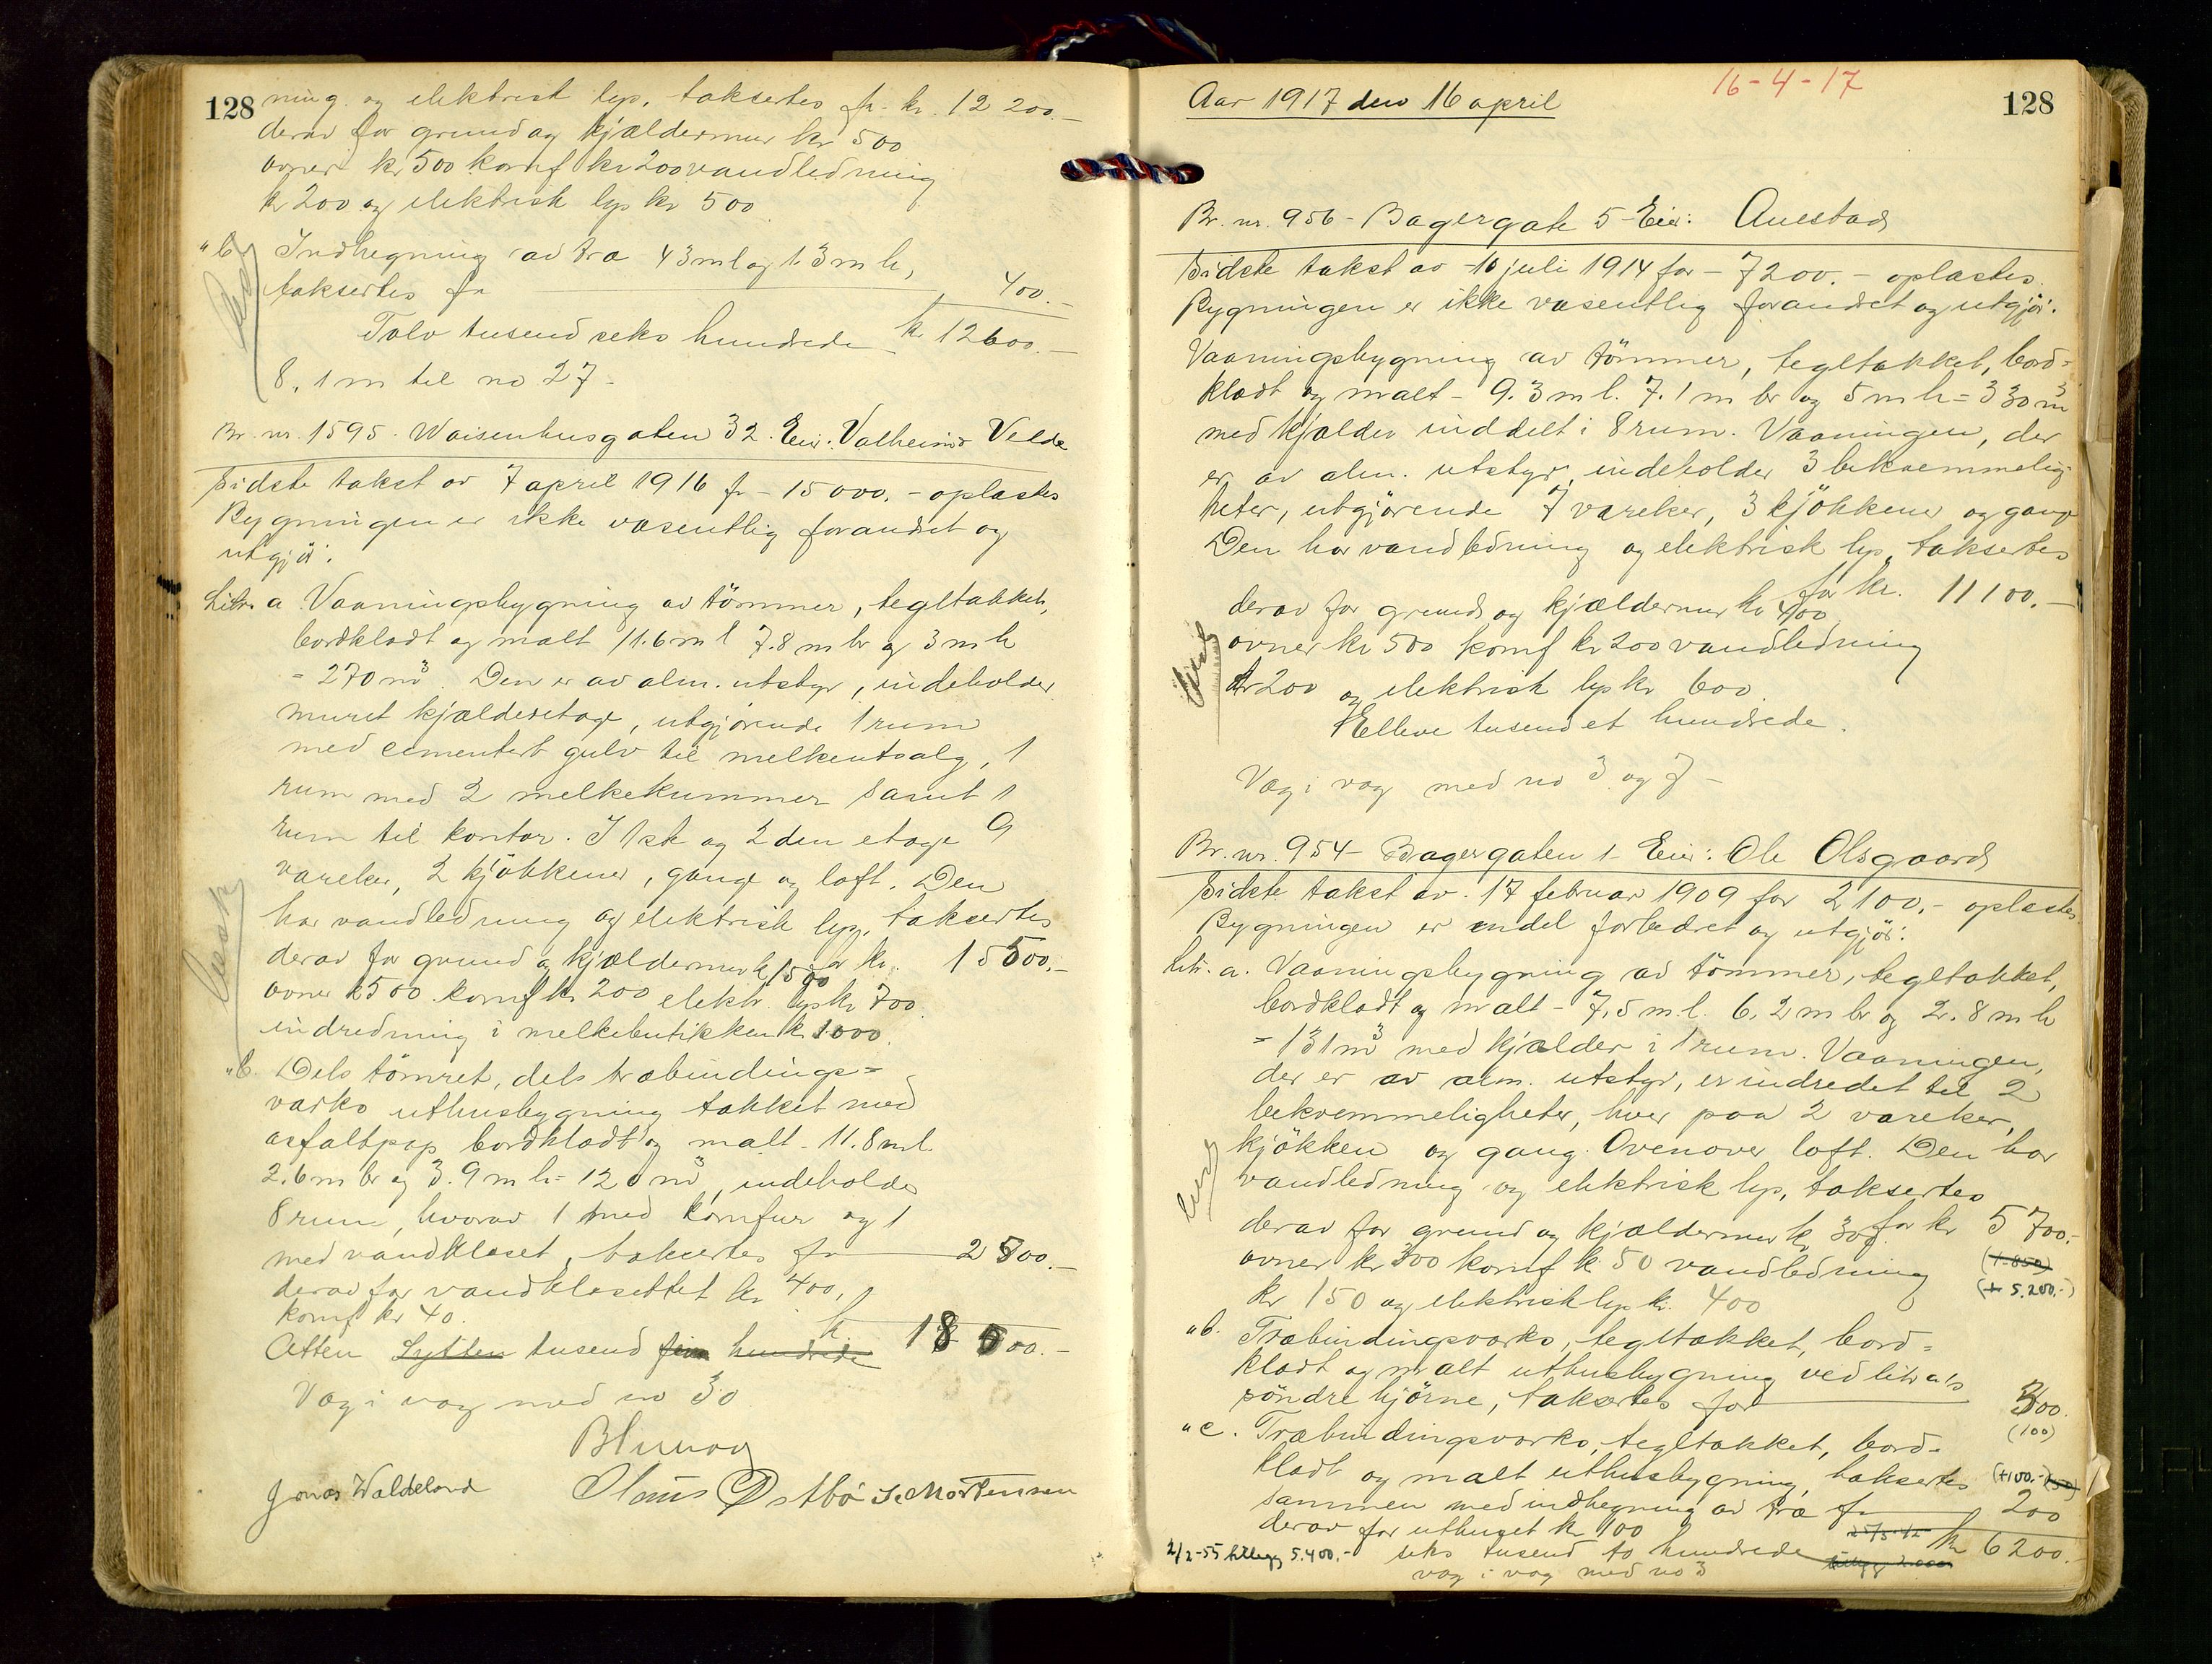 128
ning. og elektrisk lys, taksertes for kr. 12 200.-
derav for grund og kjældermur kr 500
ovner kr 500 komf kr 200 vandledning
kr 200 og elektrisk lys kr 500
"b Indhegning av træ 43 m l og 1.3 m h,
taksertes for 400.-
Tolv tusend seks hundrede kr 12600.-
8.1 m til no 27-
Br. nr. 1595. Waisenhusgaten 32. Eier: Valheim Velde
Sidste takst av 7 april 1916 for - 15000.- oplæstes
Bygningen er ikke væsentlig forandret og
utgjör:
Litr. a Vaaningsbygning av tömmer, tegltækket,
bordklædt og malt 11.6 m l 7.8 m br og 3 m h
= 270 m³. Den er av alm. utstyr, indeholder
muret kjælderetage, utgjörende 1 rum
med cementert gulv til melkeutsalg, 1
rum med 2 melkekummer samt 1
rum til kontor. I 1ste og 2den etage 9
værelser, 2 kjökkener, gange og loft. Den
har vandledning og elektrisk lys, taksertes
for kr. 15500.-
derav for grund og kjældermur kr 1500
ovner kr 500 komf kr 200 elektr. lys kr 700
indredning i melkebutikken kr 1000
"b. Dels tömret, dels træbindings=
værks uthusbygning tækket med
asfaltpap bordklædt og malt - 11.8 m l.
2.6 m br og 3.9 m h = 120 m³, indeholder
8 rum, hvorav 1 med komfur og 1
med vandkloset, taksertes for 2500.-
derav for vandklosettet kr 400,
komf kr 40.
kr 18 000.-
Atten Sytten tusend fem hundrede
Væg i væg med no 30
Jonas Waldeland
Claus Østbö
S. Mortensen
16-4-17
128
Aar 1917 den 16 april
Br. nr. 956 - Bagergate 5 - Eier: Auestad
Sidste takst av 10 juli 1914 for - 7200.- oplæstes.
Bygningen er ikke væsentlig forandret og utgjör:
Vaaningsbygning av tömmer, tegltækket, bord=
klædt og malt - 9.3 m l. 7.1 m br og 5 m h = 330 m³
med kjælder inddelt i 8 rum. Vaaningen, der
er av alm. utstyr, indeholder 3 bekvemmelig-
heter, utgjörende 7 værelser, 3 kjökkener og gang
Den har vandledning og elektrisk lys, taksertes
for kr. 11100.-
derav for grund og kjældermur kr 400
ovner kr 500 komf kr 200 vandledning
kr 200 og elektrisk lys kr 600.
Elleve tusend et hundrede.
Væg i væg med no 3 og 7-
Br. nr. 954 - Bagergaten 1 - Eier: Ole Olsgaard
Sidste takst av 17 februar 1909 for 2100,- oplæstes
Bygningen er endel forbedret og utgjör:
Litr. a. Vaaningsbygning av tömmer, tegltækket,
bordklædt og malt - 7.5 m l. 6.2 m br og 2.8 m h
= 131 m³ med kjælder i 1 rum. Vaaningen,
der er av alm. utstyr, er indredet til 2
bekvemmeligheter, hver paa 2 værelser,
kjökken og gang. Ovenover loft. Den har
vandledning og elektrisk lys, taksertes
for kr 5700.-
derav for grund og kjældermur kr 300
ovner kr 300 komf kr 50 vandledning
(+ 850)
kr 150 og elektrisk lys kr. 400
(+ 5.200.-)
"b. Træbindingsværks, tegltækket, bord=
klædt og malt uthusbygning ved litr a's
söndre hjörne, taksertes for 300.
(100)
"c. Træbindingsværks, tegltækket, bord-
klædt og malt uthusbygning, taksertes
(+100.-)
sammen med indhegning av træ for 200
derav for uthuset kr 100
kr 6200.-
2/2-55 tillegg 5.400.- seks tusend to hundrede
væg i væg med no 3